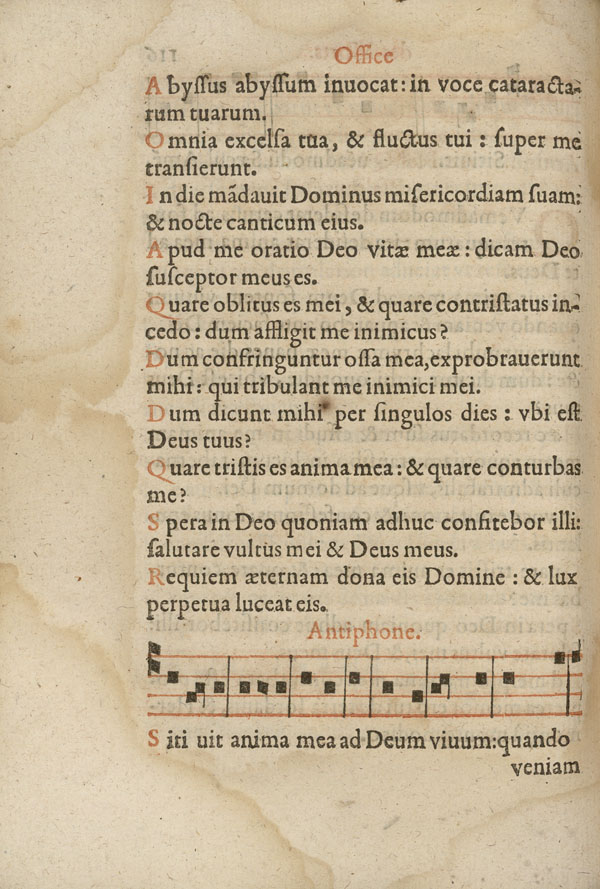 Office
Abyſſus abyſſum inuocat: in voce cataracta-
rum tuarum.
Omnia excelſa tua, & fluctus tui : ſuper me
tranſierunt.
In die mãdauit Dominus miſericordiam ſuam:
& nocte canticum eius.
Apud me oratio Deo vitæ meæ : dicam Deo
ſuſceptor meus es.
Quare oblitus es mei, & quare contriſtatus in-
cedo : dum affligit me inimicus?
Dum confringuntur oſſa mea, exprobrauerunt
mihi: qui tribulant me inimici mei.
Dum dicunt mihi per ſingulos dies : vbi eſt
Deus tuus?
Quare triſtis es anima mea: & quare conturbas
me?
Spera in Deo quoniam adhuc confitebor illi:
ſalutare vultus mei & Deus meus.
Requiem æternam dona eis Domine : & lux
perpetua luceat eis.
Antiphone.
Siti uit anima mea ad Deum viuum: quando
veniam